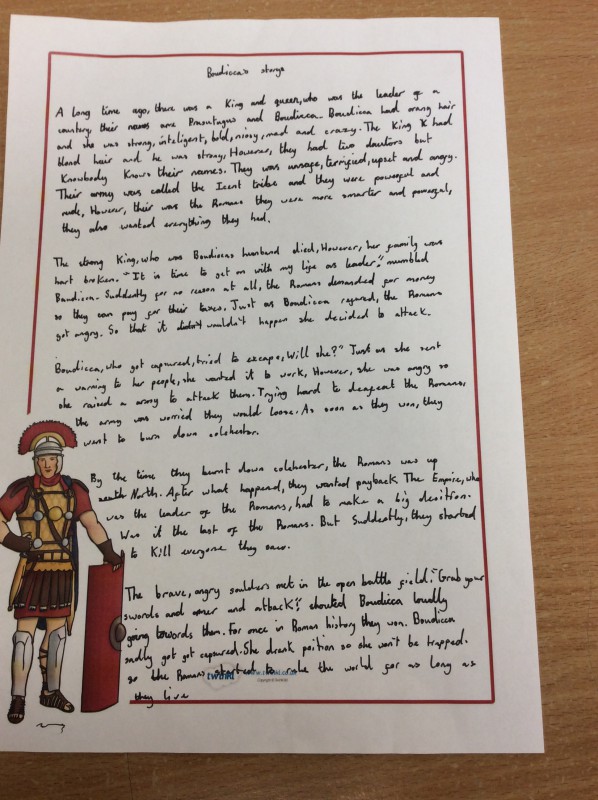 Boudicca's storye
A long time ago, there was a King and queen, who was the leader of a
country, their names are Prasutagus and Boudicca. Boudicca had orang hair
and she was strong, inteligent, bold, nirsy, mad and crazy. The King had
blond hair and he was strong, However, they had two dautors but
Knowbody Knows their names. They was unsafe, terrified, upset and angry.
Their army was called the Iceni tribe and they were powerful and
rude, However, their was the Romans they were more smarter and powerful,
they also wanted everything they had.
The strong King, who was Boudiccas husband died, However, her family was
hart broken. "It is time to get on with my life as leader," mumbled
Boudicca. Suddenly for no reason at all, the Romans demanded for money
so they can pay for their taxes. Just as Boudicca refused, the Romans
got angry. So that it didn't wouldn't happen she decided to attack.
Boudicca, who got capured, tried to excape, Will she?" Just as she sent
a warning to her people, she wanted it to work, However, she was angry so
she raised a army to attack them. Trying hard to the Romans,
the army was worried they would loose. As soon as they won, they
want to burn down colchester.
By the time they burnt down colchester, the Romans was up
North. After what happened, they wanted payback. The Empire, who
was the leader of the Romans, had to make a big desitron.
Was it the last of the Romans. But Suddenly, they started
to Kill everyone they saw.
The brave, angry soulders met in the open battle field. "Grab your
swords and and attack!" shouted Boudicca loudly
going towords them. For once in Roman history they won. Boudicca
sadly got got capured. She drank position so she won't be trapped.
so the Romans started to rule the world for as long as
they live
twinkl www.twinkl.co.uk